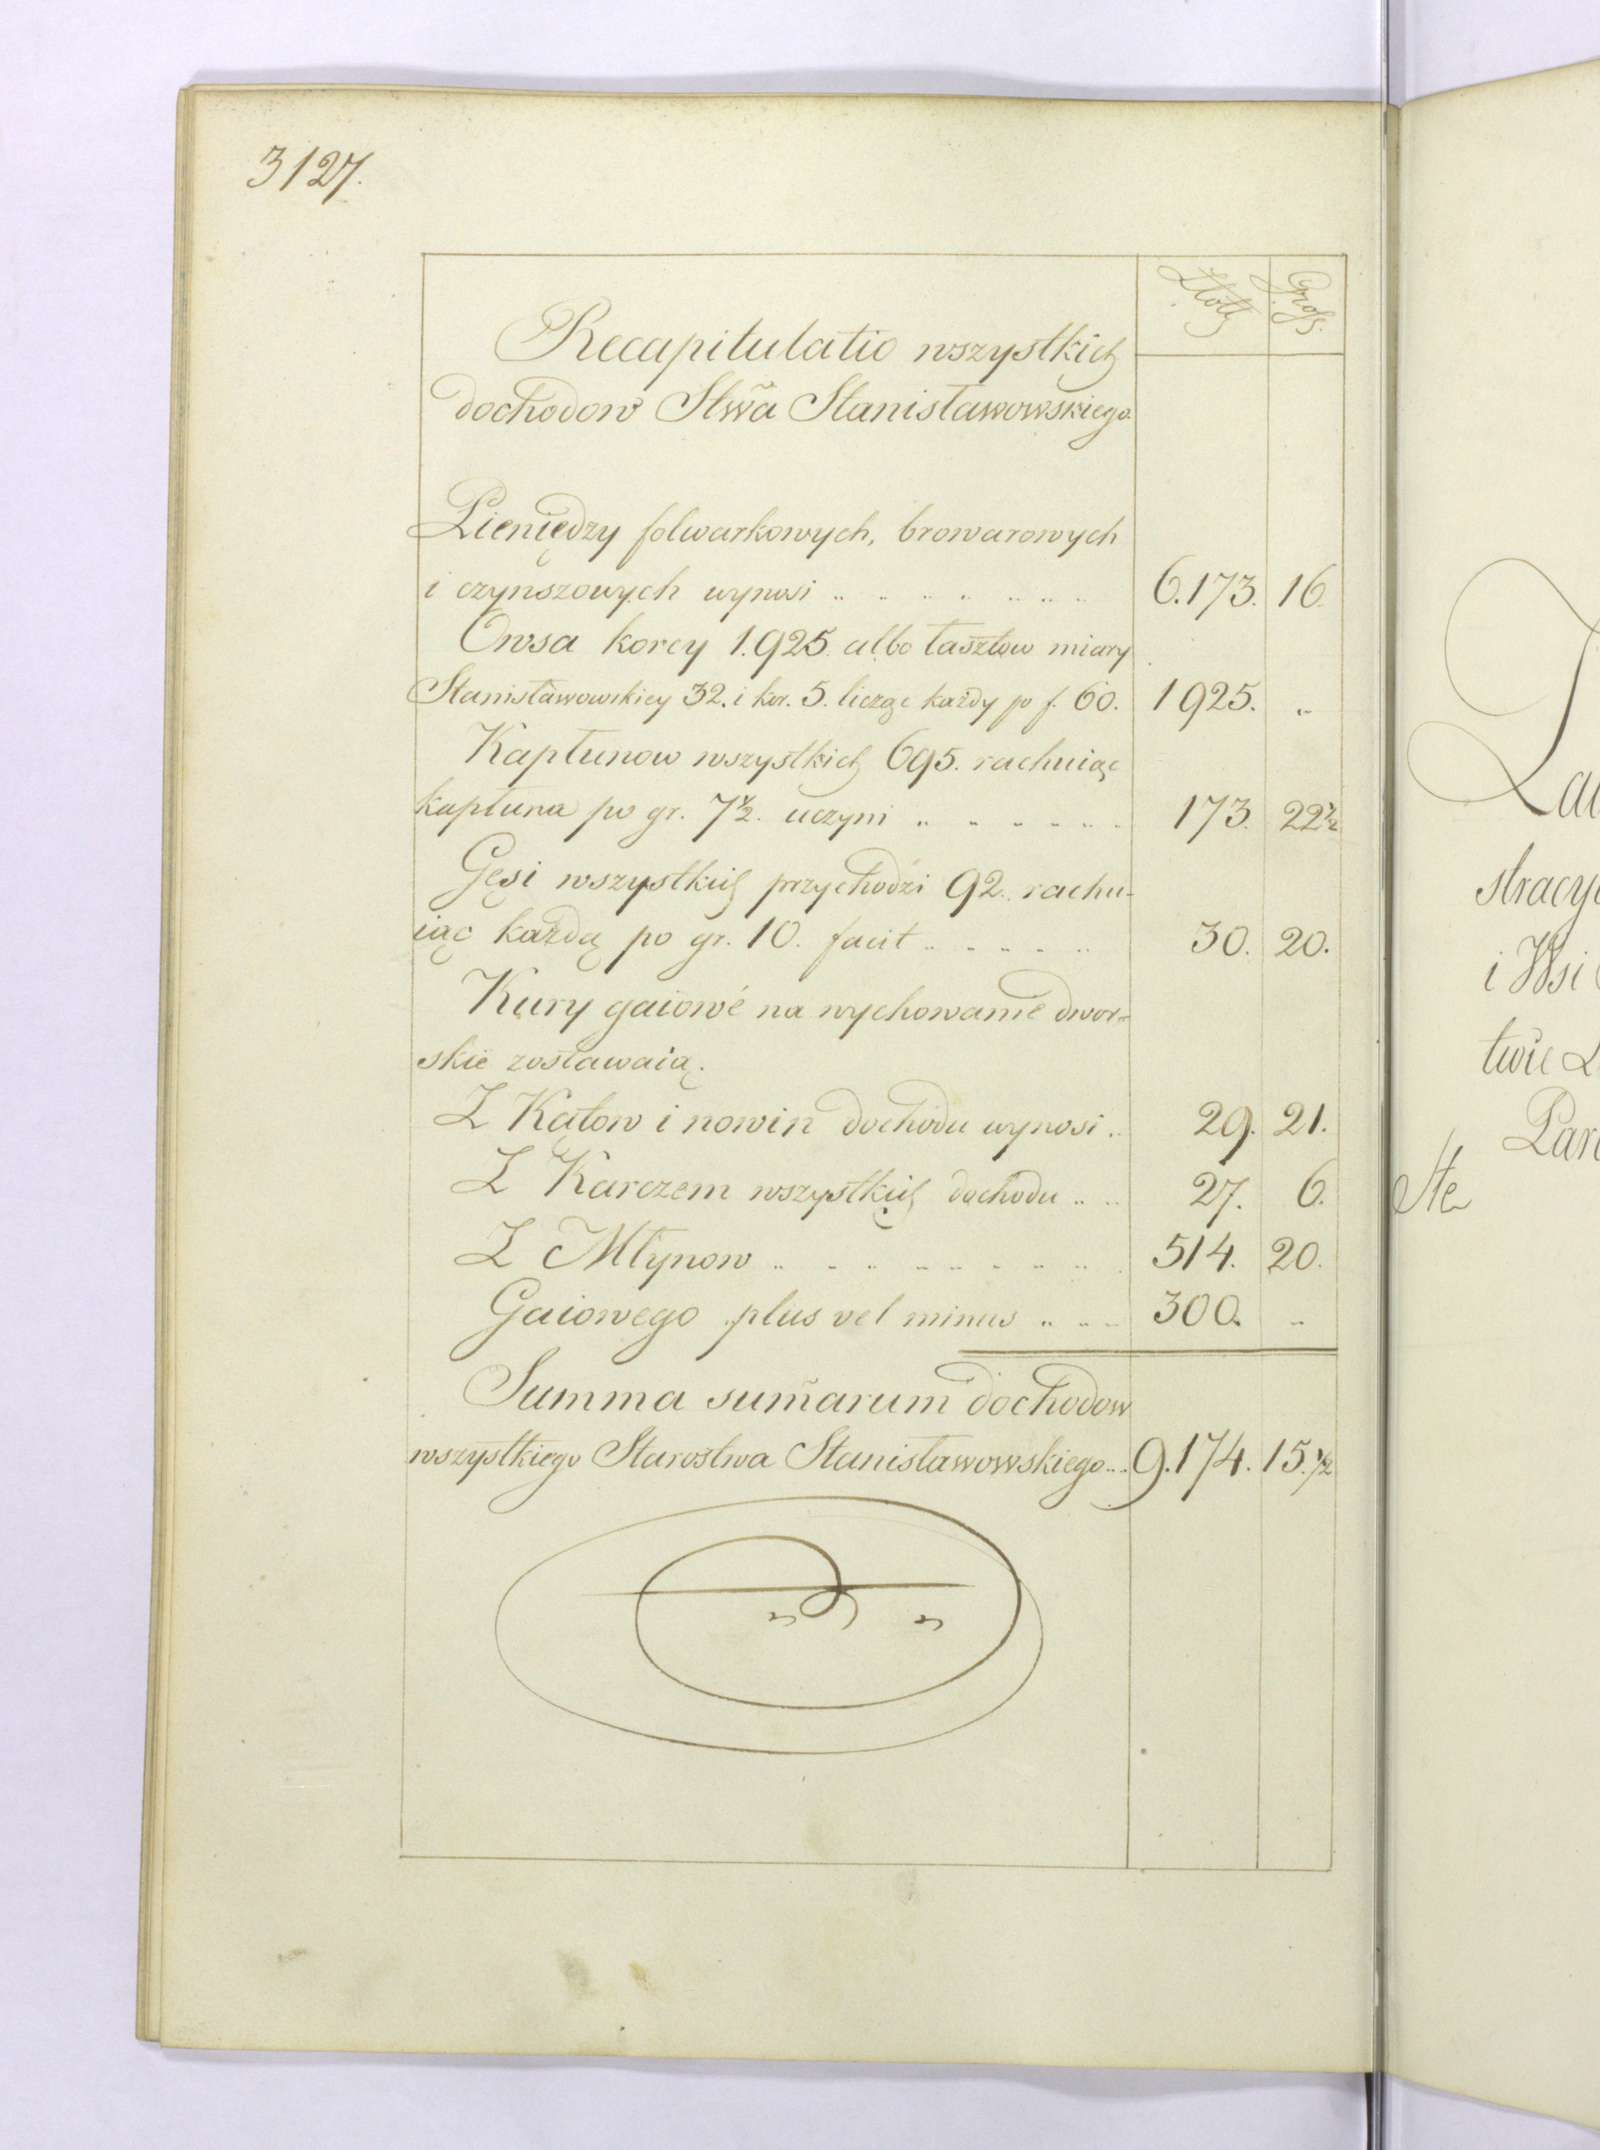 3127.
Złote Gross.
Recapitulatio wszystkich
dochodow Stwã Stanisławowskiego
Pieniędzy folwarkowych, browarowych
i czynszowych wynosi .. .. .. .. .. .. .. 6.173. 16.
Owsa korcy 1.925. albo łasztow miary
Stanisławowskiey 32. i kor. 5. licząc każdy po f. 60. 1925. ..
Kapłunow wszystkich 695. rachuiąc
kapłuna po gr. 7½. uczyni .. .. .. .. .. .. 173. 22½
Gęsi wszystkich przychodzi 92. rachu-
iąc każdą po gr. 10. facit .. .. .. .. .. 30. 20.
Kury gaiowé na wychowanie dwor-
skie zostawaią.
Z Kątow i nowin dochodu wynosi .. 29. 21.
Z Karczem wszystkich dochodu .. .. 27. 6.
Z Młynow .. .. .. .. .. .. .. .. 514. 20.
Gaiowego plus vel minus .. .. .. 300. ..
Summa sum̃arum dochodow
wszystkiego Starostwa Stanisławowskiego... 9.174. 15.½
stracy
i Wsi
twie
Ste